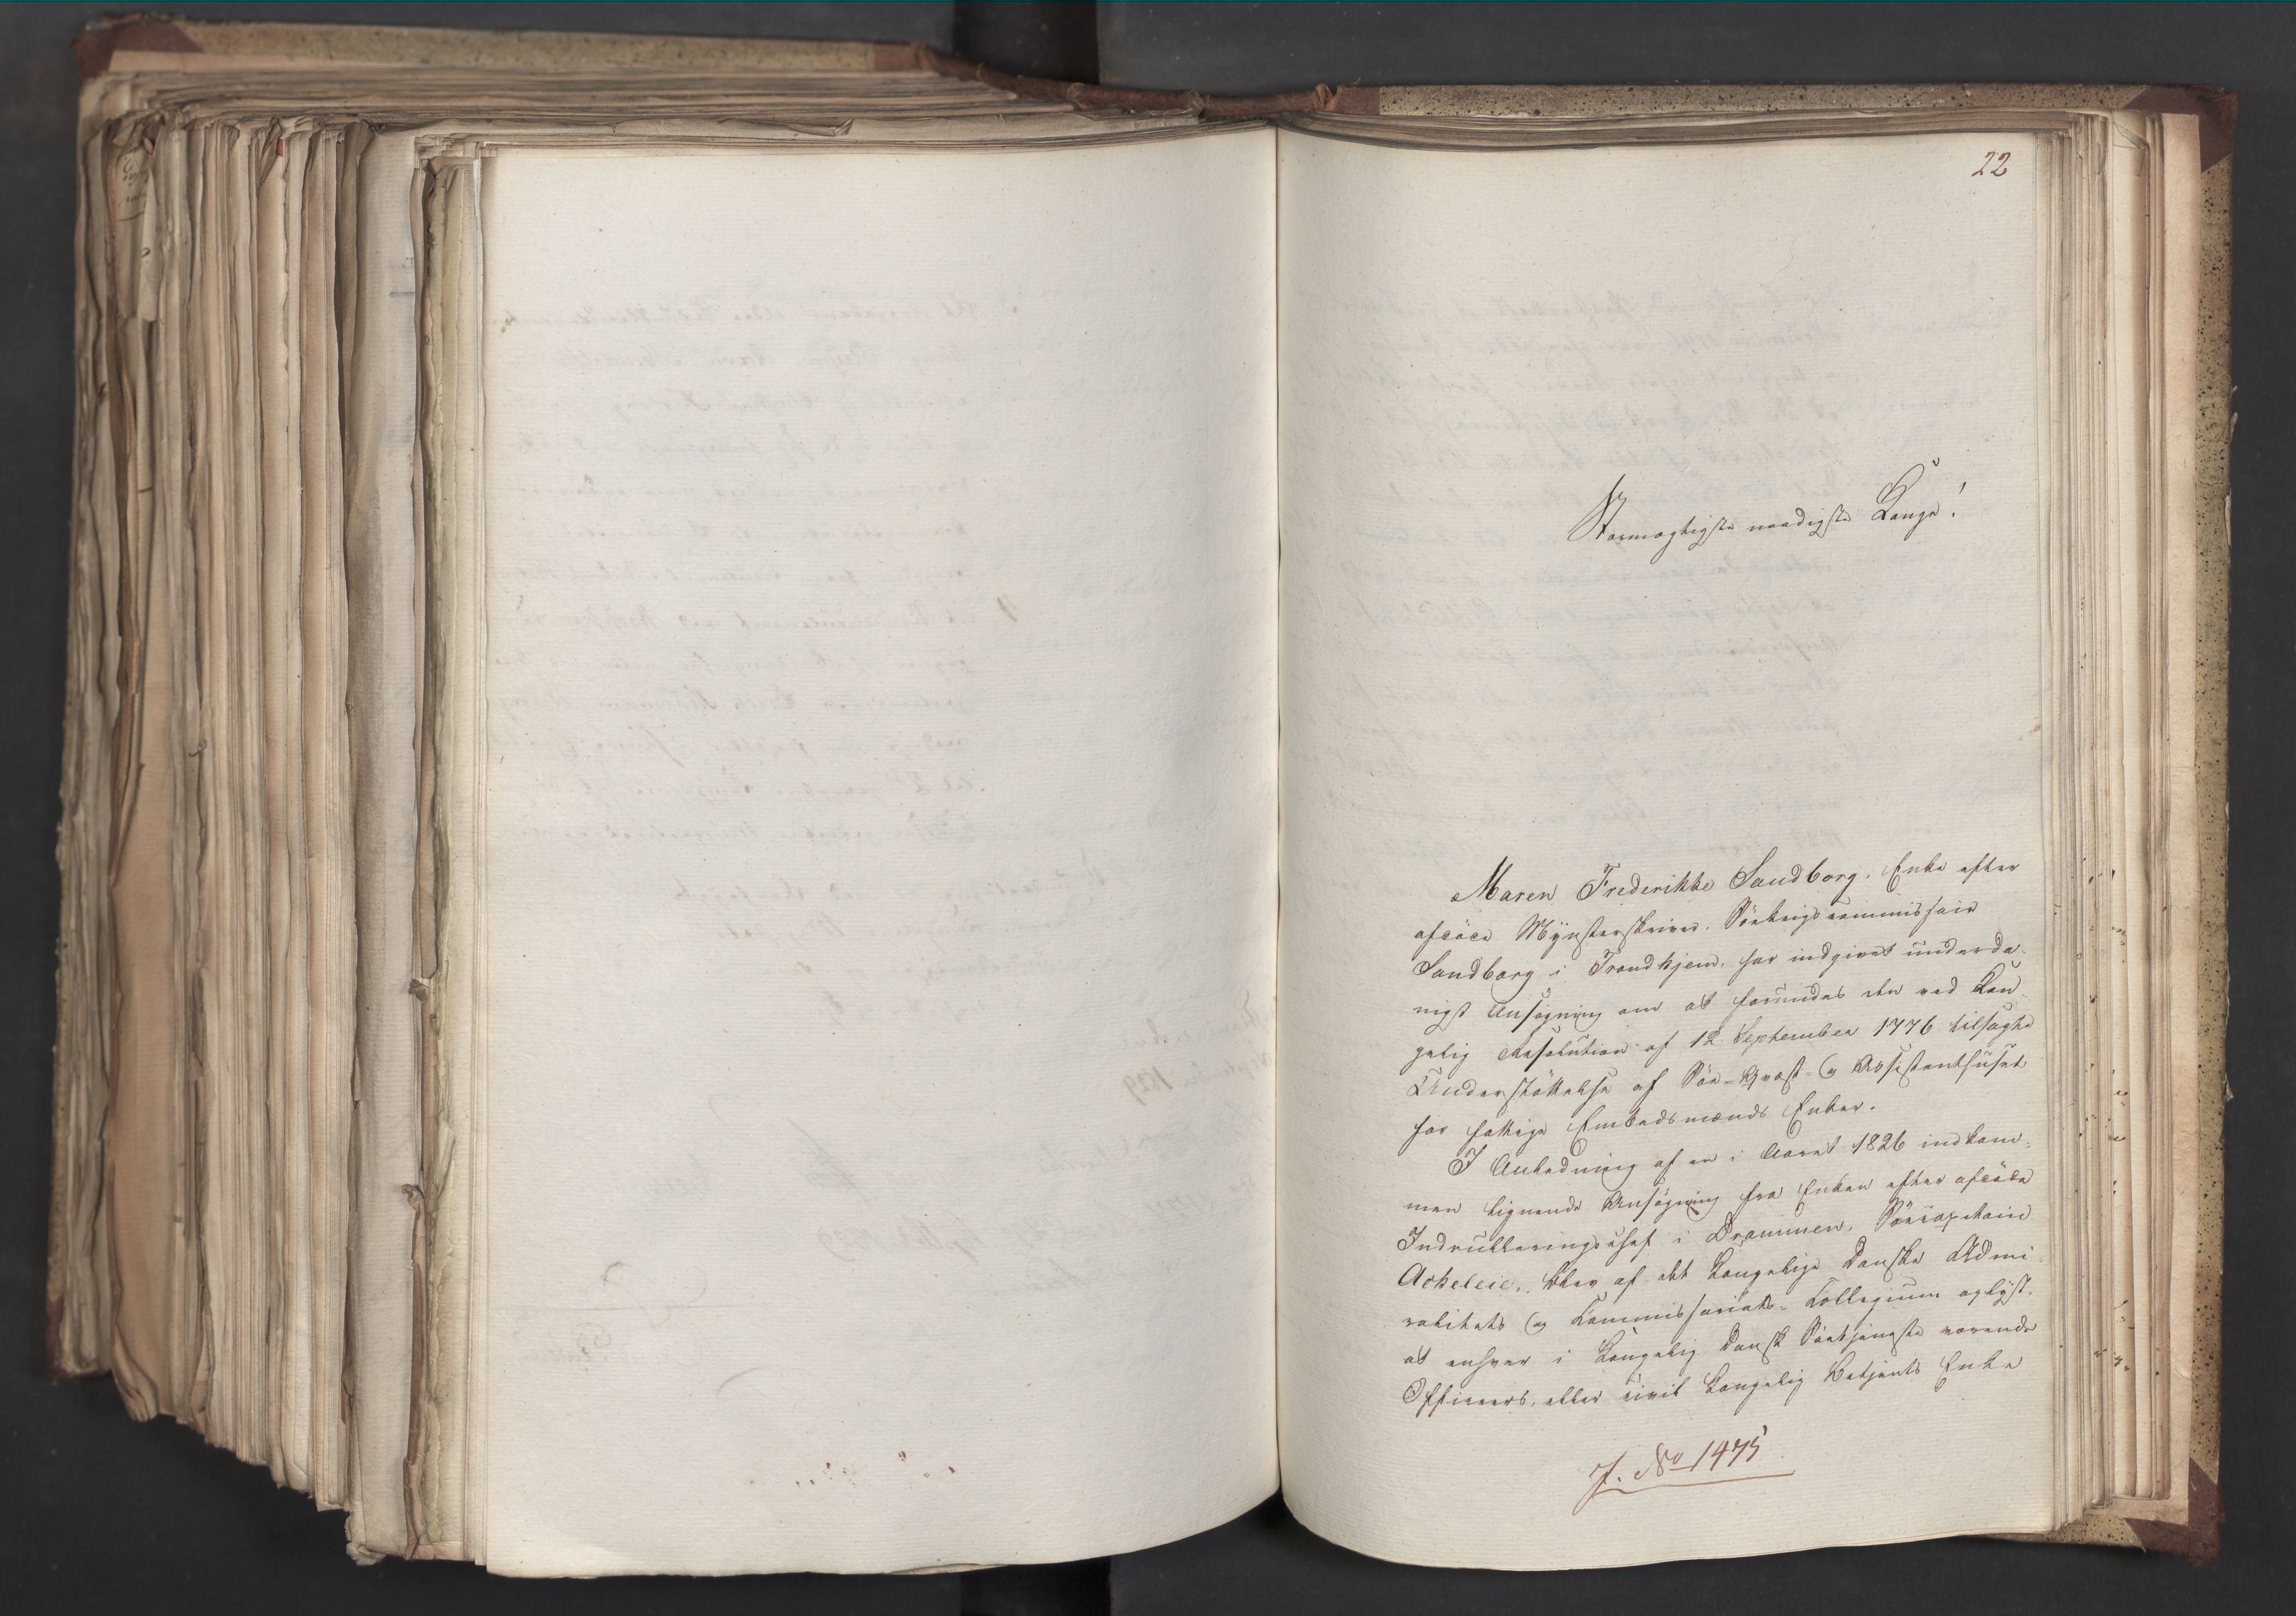 22
Stormægtigste naadigste Konge!
Maren Frederikke Sandborg, Enke efter
afdöde Mÿnsterskriver, Söekrigscommissair
Sandborg i Trondhjem, har indgivet underda-
nigst Ansögning om at forundes den ved Kon-
gelig Resolution af 12 September 1776 tilsagte
Understöttelse af Söe-Qvæst- og Assistenthuset
for fattige Embedsmænds Enker.
I Anledning af en i Aaret 1826 indkom-
men lignende Ansögning fra Enken efter afdöde
Indrulleringschef i Drammen, Söecapitain
Akeleie, blev af det Kongelige Danske Admi-
ralitets og Commissariats-Collegium oplÿst,
at enhver i Kongelig Dansk Söetjeneste værende
Officeers, eller civil Kongelig Betjents Enke
J. No 1475